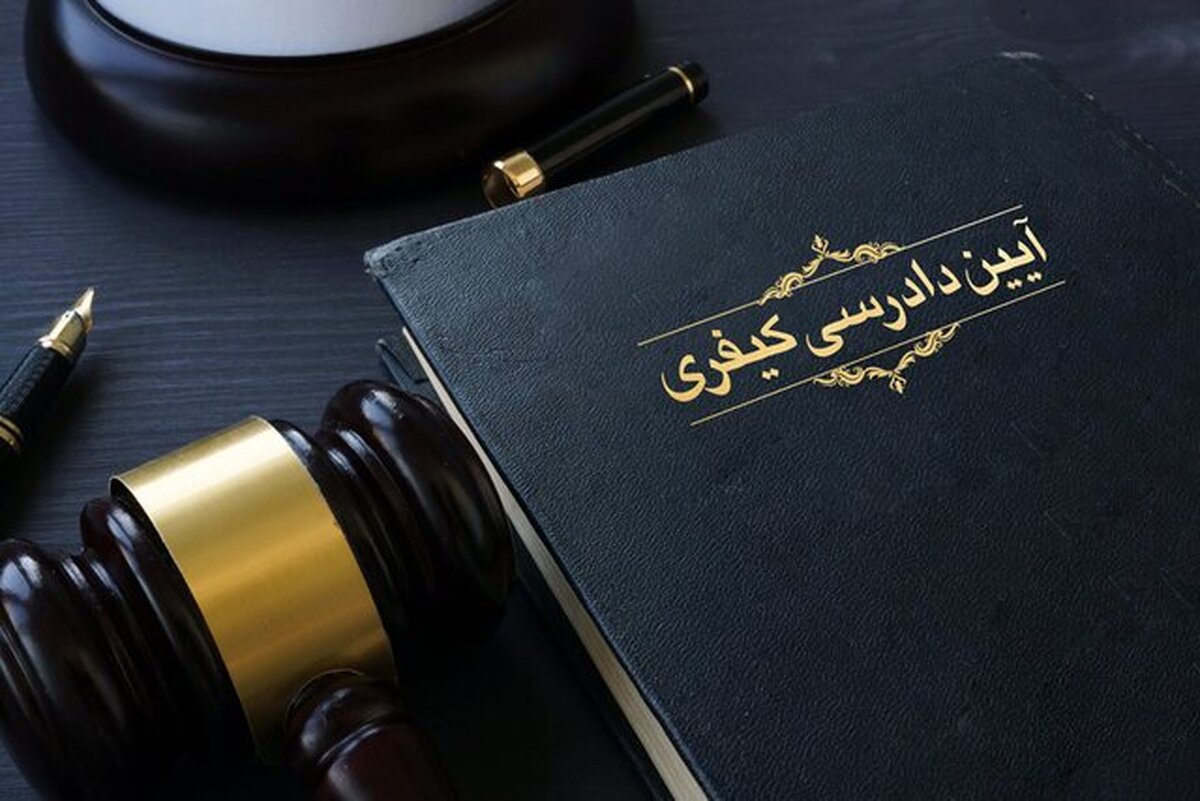 آیین دادرسی کیفری